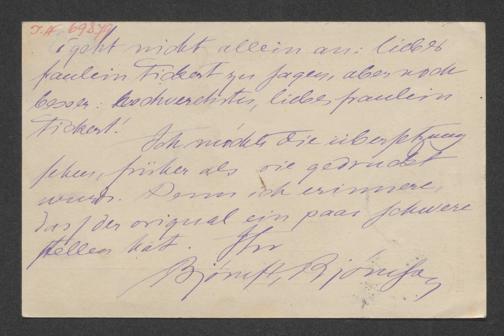 I.N. 69879
geht nicht allein an: liebes
fraulein Fickert zu sagen, aber noch
besser: hochverehrtes, liebes fraulein
Fickert!
Ich möchte die übersetzung
sehen, früher als sie gedruckt
wurde. Denn ich erinnere,
dass der original ein paar schwere
stellen hat. Ihr
Bjørnst. Bjørnson